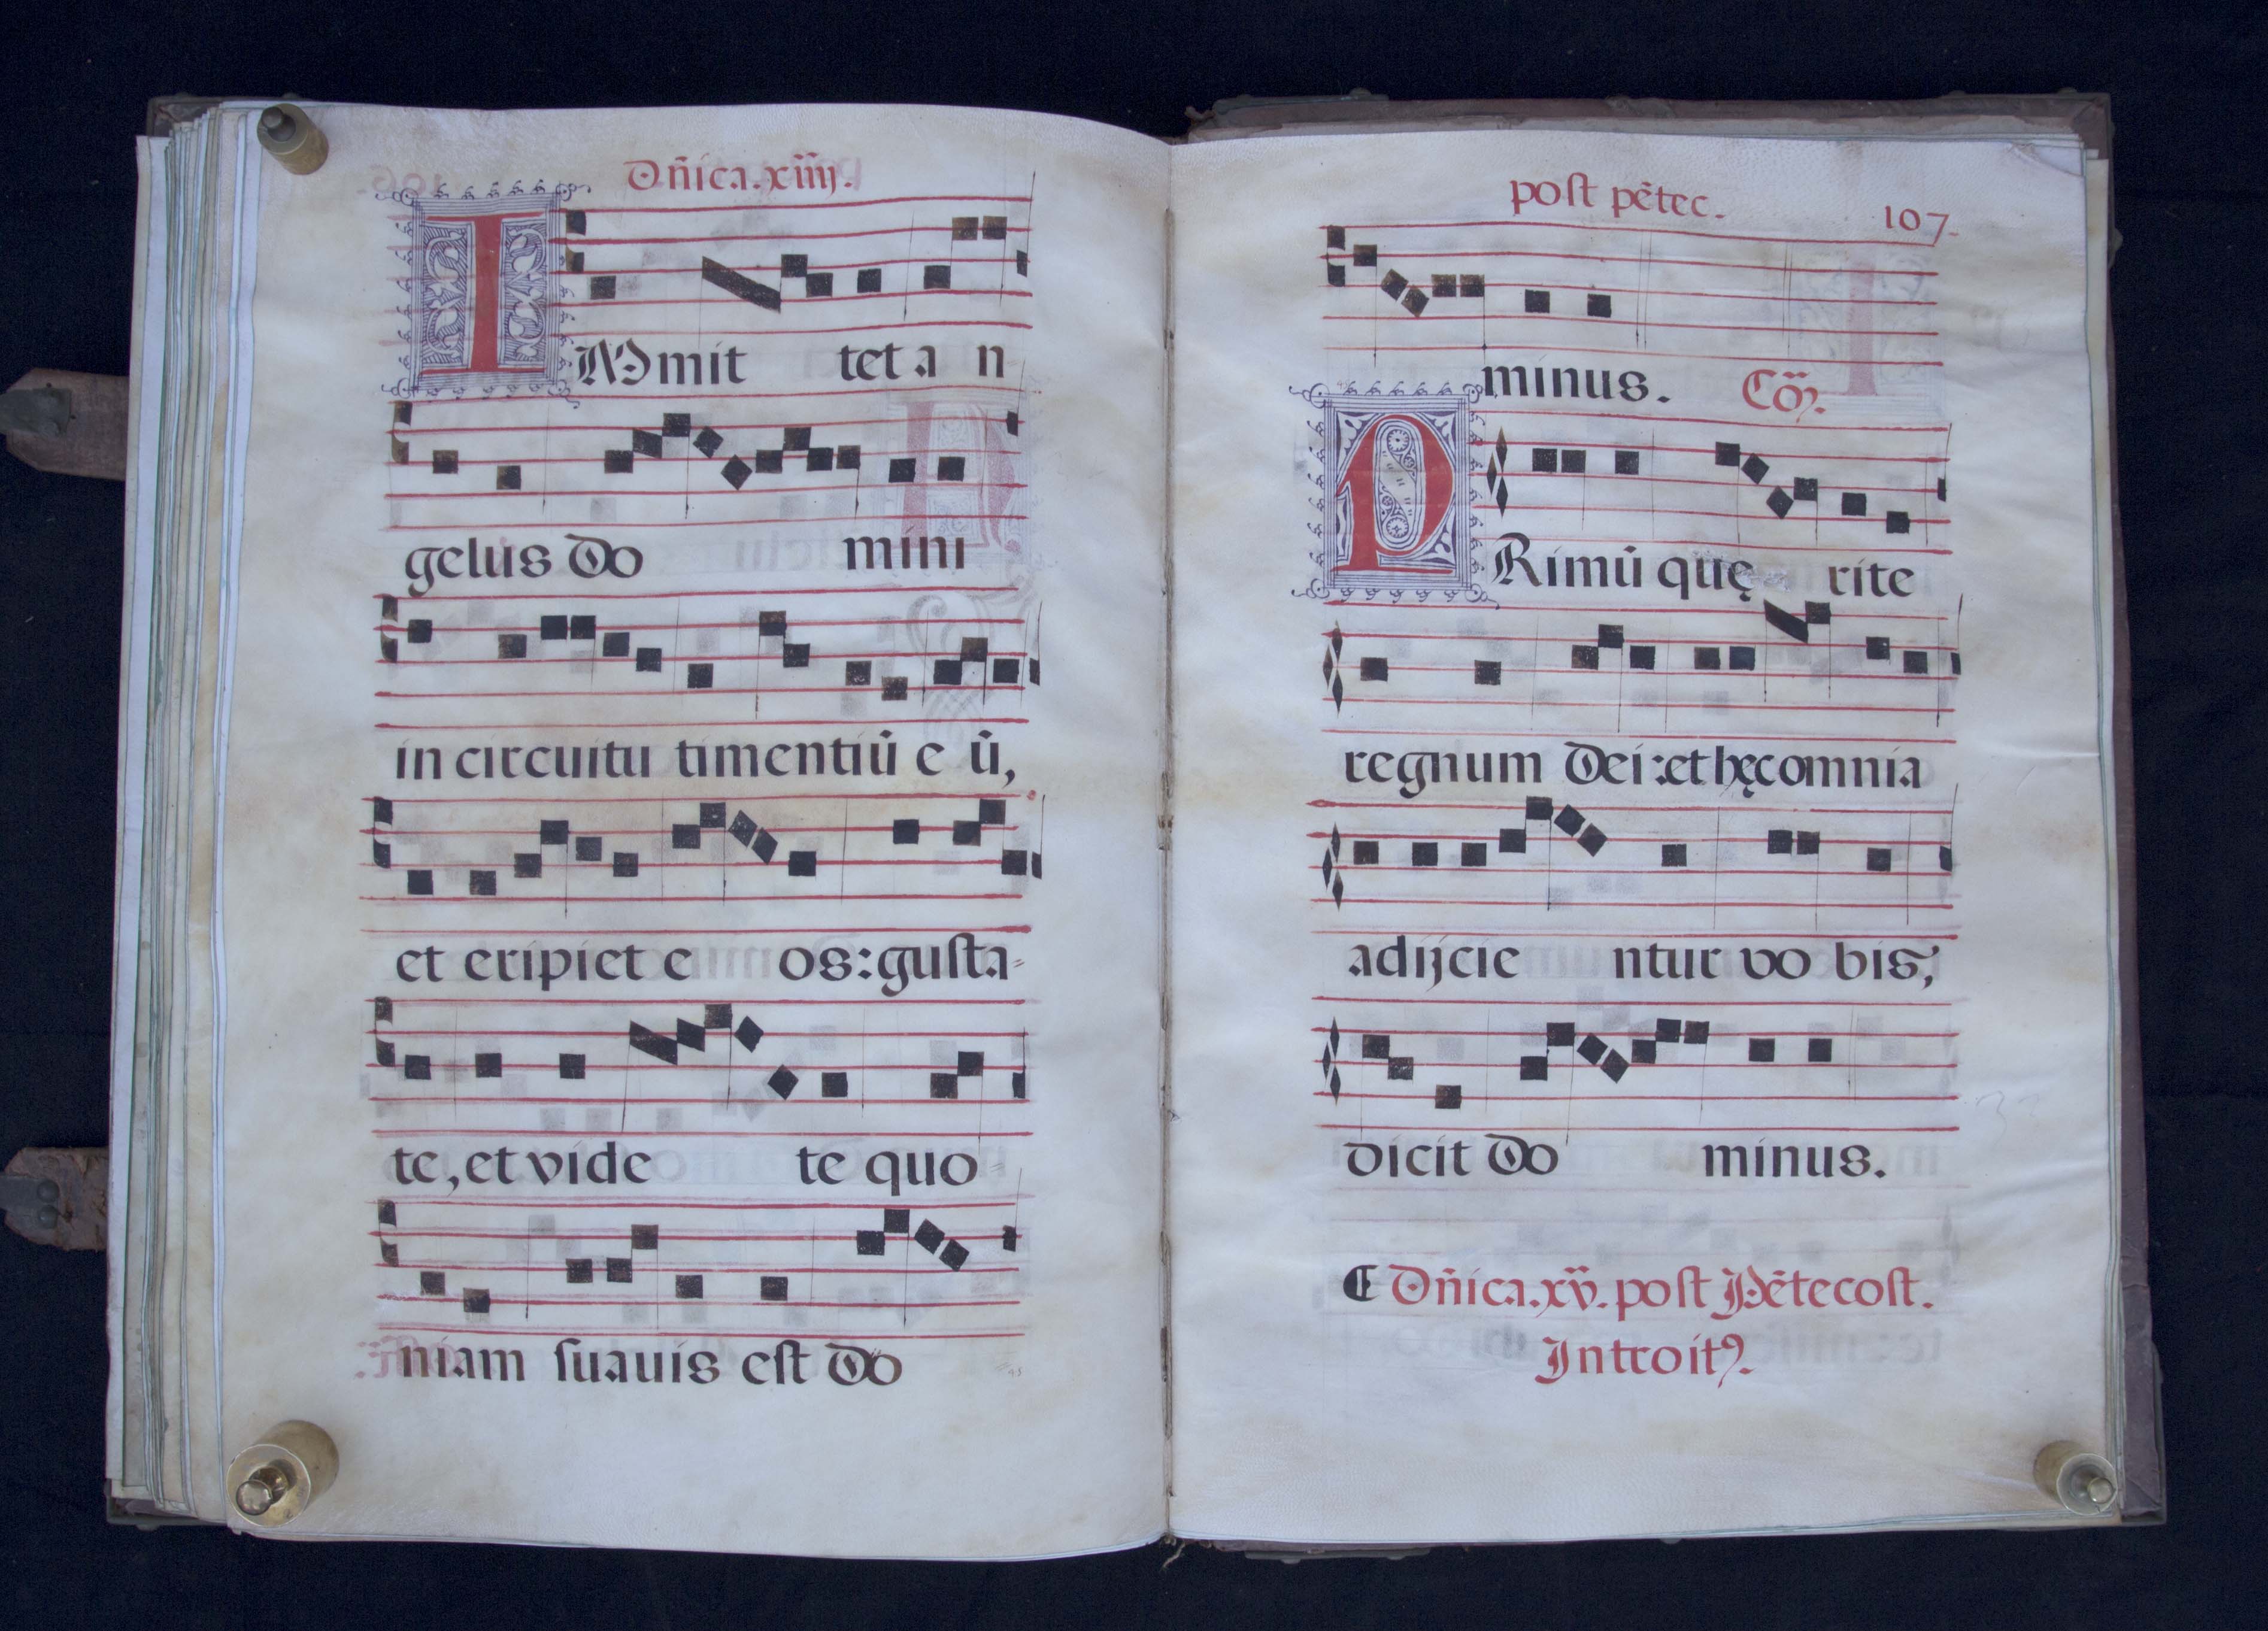 Dñica. xiiij.
IMmit tet a n
gelus Do mini
in circuitu timentiū e ū,
et eripiet e os: gusta-
te, et vide te quo-
niam suauis est Do
post pētec. 107.
minus. Cō.
PRimū quę rite
regnum Dei: et hęc omnia
adijcie ntur vo bis,
dicit Do minus.
Dñica. xv. post Pētecost.
Introitꝰ.